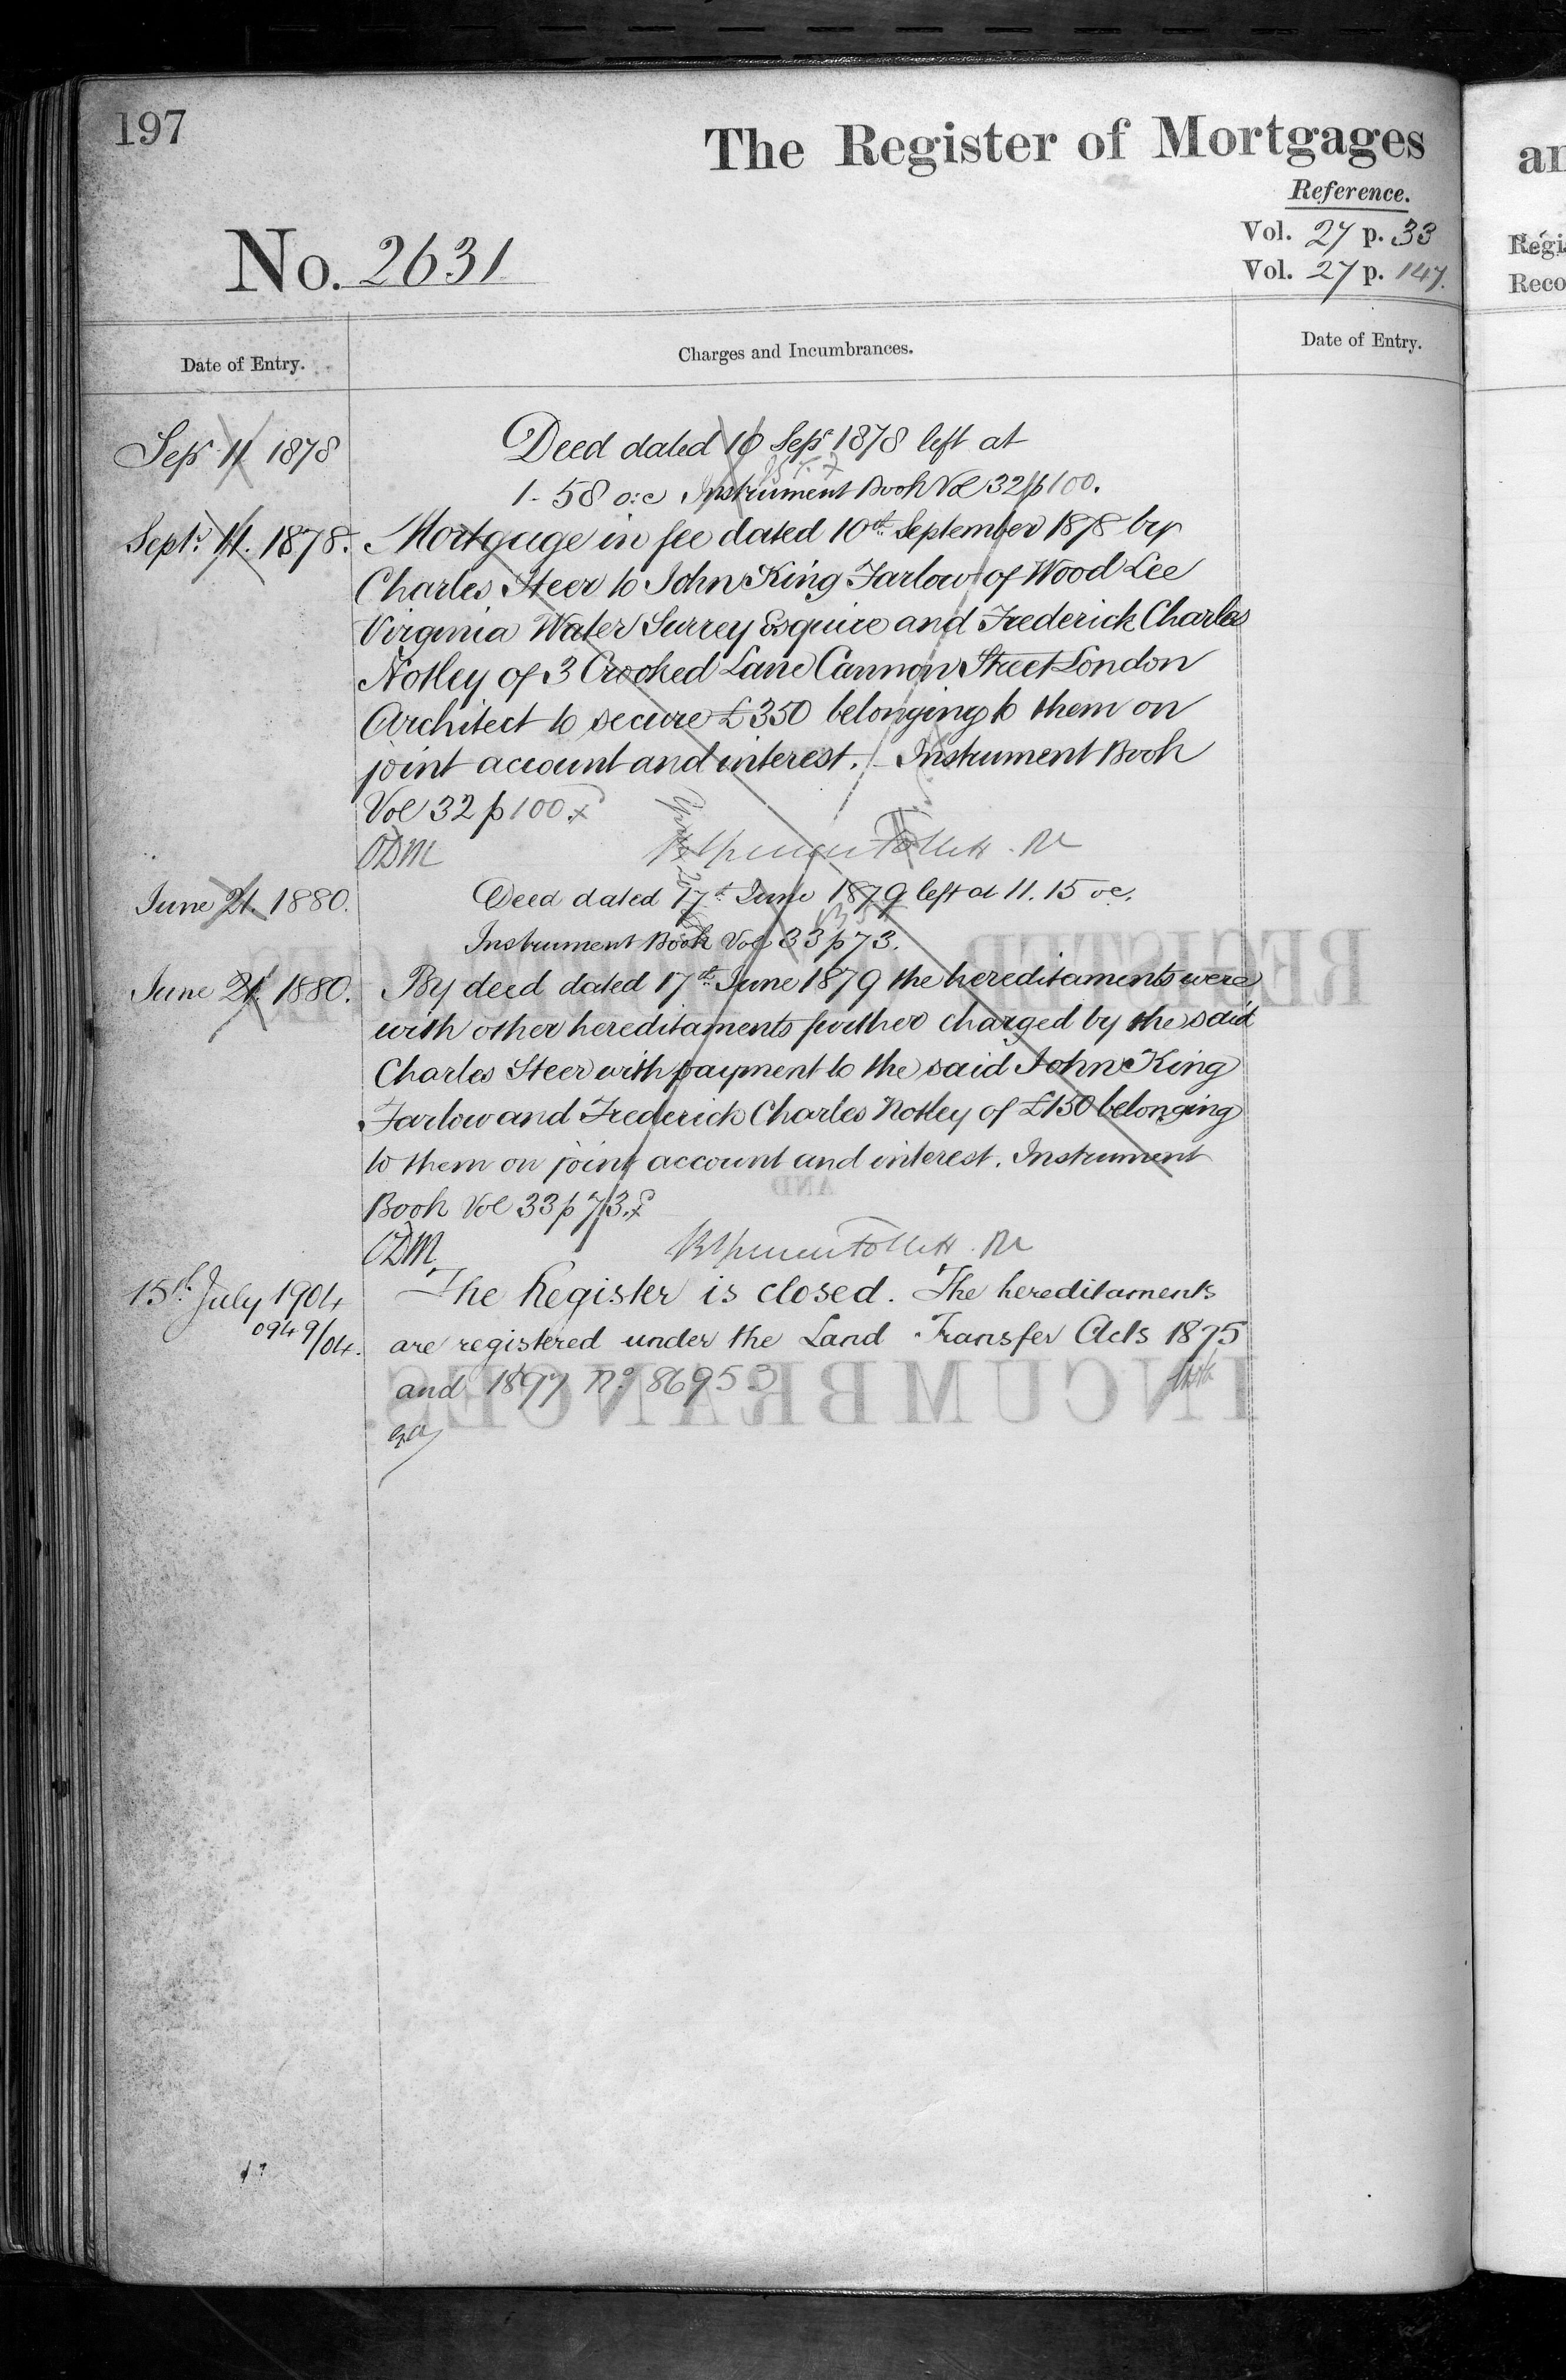 197
The Register of Mortgages
Reference.
No. 2631
Vol. 27 p. 33
Vol. 27 p. 147.
Date of Entry.
Charges and Incumbrances.
Date of Entry.
Sepr 11 1878
Deed dated 10 Sepr 1878 left at
1. 58 o:c Instrument Book Vol 32 p 100.
Septr 11. 1878.
Mortgage in fee dated 10th September 1878 by
Charles Steer to John King Farlow of Wood Lee
Virginia Water Surrey Esquire and Frederick Charles
Notley of 3 Crooked Lane Cannon Street London
Architect to secure £350 belonging to them on
joint account and interest. Instrument Book
Vol 32 p 100.
ODM
Follett
June 21. 1880.
Deed dated 17th June 1879 left at 11. 15 oc.
Instrument Book Vol 33 p 73.
June 21. 1880.
By deed dated 17th June 1879 the hereditaments were
with other hereditaments further charged by the said
Charles Steer with payment to the said John King
Farlow and Frederick Charles Notley of £150 belonging
to them on joint account and interest. Instrument
Book Vol 33 p 73.
ODM
Follett
15th July 1904
0949/04.
The Register is closed. The hereditaments
are registered under the Land Transfer Acts 1875
and 1897 No 86953
an
Regi
Reco